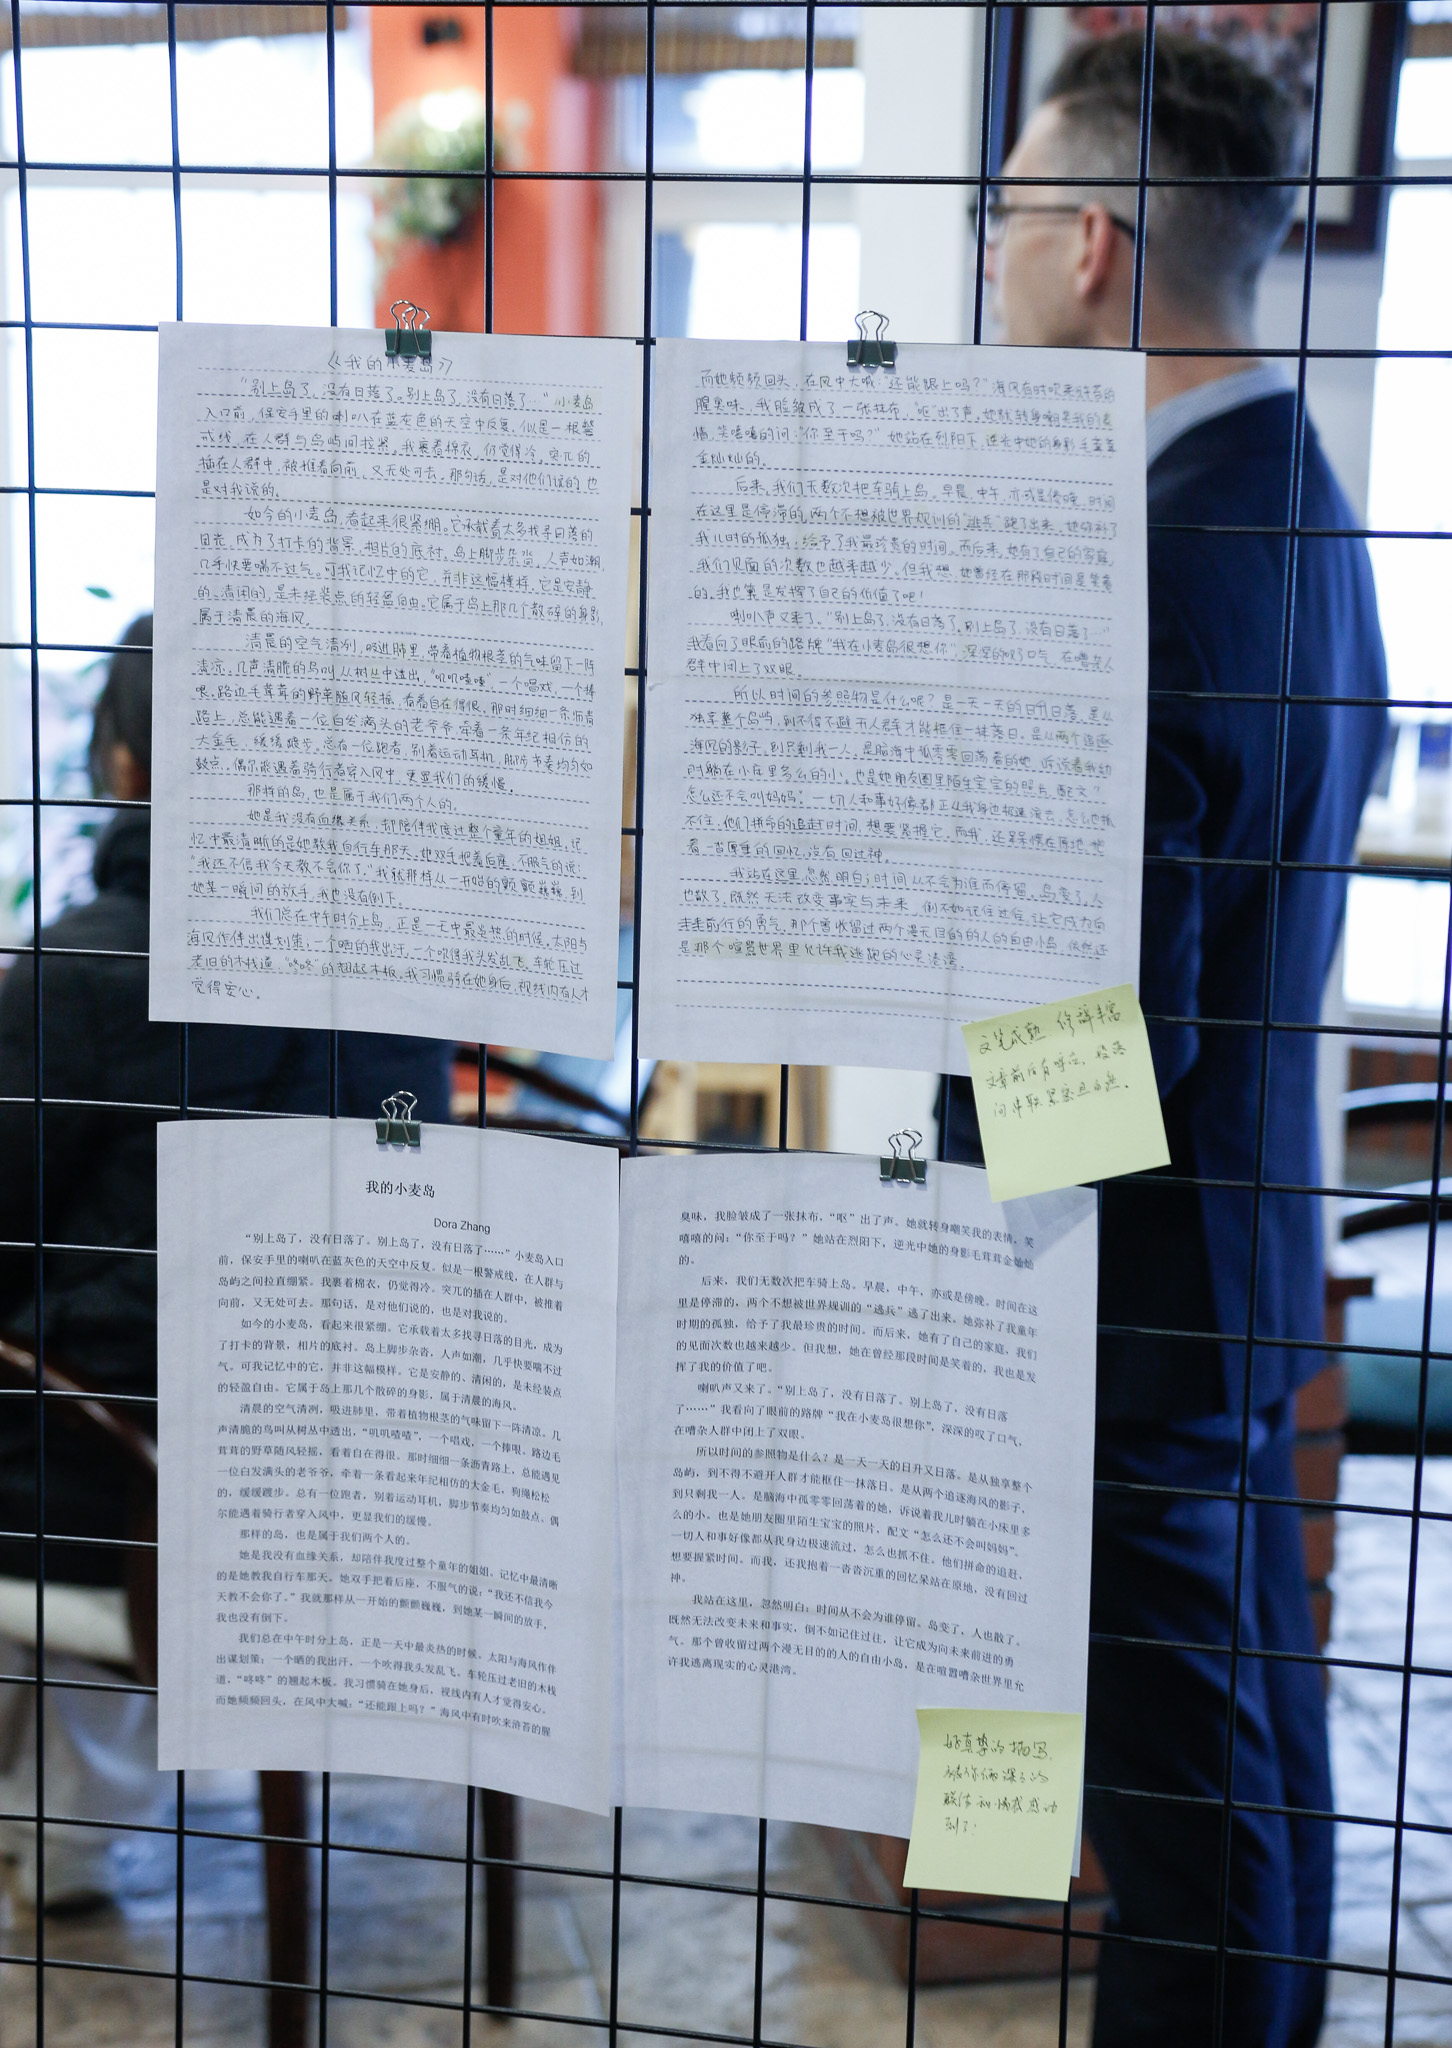 《我的小麦岛》
"别上岛了,没有日落了。别上岛了,没有日落了…"小麦岛
入口前,保安手里的喇叭在蓝灰色的天空中反复。似是一根警
戒线,在人群与岛屿间拉紧。我裹着棉衣,仍觉得冷。突兀的
插在人群中,被推着向前,又无处可去。那句话,是对他们说的,也
是对我说的。
如今的小麦岛,看起来很紧绷。它承载着太多找寻日落的
目光,成为了打卡的背景,相片的底衬。岛上脚步杂沓,人声如潮,
几乎快要喘不过气。可我记忆中的它,并非这幅模样。它是安静
的、清闲的,是未经装点的轻盈自由。它属于岛上那几个散碎的身影,
属于清晨的海风。
清晨的空气清冽,吸进肺里,带着植物根茎的气味留下一阵
清凉。几声清脆的鸟叫从树丛中透出,"叽叽喳喳",一个唱戏,一个捧
哏。路边毛茸茸的野草随风轻摇,看着自在得很。那时细细一条沥青
路上,总能遇着一位白发满头的老爷爷,牵着一条年纪相仿的
大金毛,缓缓踱步。总有一位跑者,别着运动耳机,脚步节奏均匀如
鼓点。偶尔能遇着骑行者穿入风中,更显我们的缓慢。
那样的岛,也是属于我们两个人的。
她是我没有血缘关系,却陪伴我度过整个童年的姐姐。记
忆中最清晰的是她教我自行车那天。她双手把着后座,不服气的说:
"我还不信我今天教不会你了。"我就那样从一开始的颤颤巍巍,到
她某一瞬间的放手,我也没有倒下。
我们总在中午时分上岛,正是一天中最炎热的时候。太阳与
海风作伴出谋划策:一个晒的我出汗,一个吹得我头发乱飞。车轮压过
老旧的木栈道,"咚咚"的翘起木板。我习惯骑在她身后,视线内有人才
觉得安心。
而她频频回头,在风中大喊:"还能跟上吗?"海风有时吹来浒苔的
腥臭味,我脸皱成了一张抹布,"呕"出了声。她就转身嘲笑我的表
情,笑嘻嘻的问:"你至于吗?"她站在烈阳下,逆光中她的身影毛茸茸
金灿灿的。
后来,我们无数次把车骑上岛。早晨,中午,亦或是傍晚。时间
在这里是停滞的,两个不想被世界规训的"逃兵"跑了出来。她弥补了
我儿时的孤独,给予了我最珍贵的时间。而后来,她有了自己的家庭,
我们见面的次数也越来越少。但我想,她曾经在那段时间是笑着
的,我也算是发挥了自己的价值了吧!
喇叭声又来了。"别上岛了,没有日落了。别上岛了,没有日落了…"
我看向了眼前的路牌"我在小麦岛很想你",深深的叹了口气,在嘈杂人
群中闭上了双眼。
所以时间的参照物是什么呢?是一天一天的日升日落。是从
独享整个岛屿,到不得不避开人群才能框住一抹落日。是从两个追逐
海风的影子,到只剩我一人。是脑海中孤零零回荡着的她,诉说着我幼
时躺在小床里多么的小。也是她朋友圈里陌生宝宝的照片,配文"
怎么还不会叫妈妈"。一切人和事好像都正从我身边极速流去,怎么也抓
不住。他们拼命的追赶时间,想要紧握它。而我,还呆愣在原地,抱
着一沓厚重的回忆,没有回过神。
我站在这里,忽然明白:时间从不会为谁而停留。岛变了,人
也散了。既然无法改变事实与未来,倒不如记住过往,让它成为向
未来前行的勇气。那个曾收留过两个漫无目的的人的自由小岛,依然还
是那个喧嚣世界里允许我逃跑的心灵港湾。
文笔成熟 修辞丰富
文章前后有呼应,段落
间串联紧密且自然。
我的小麦岛
Dora Zhang
"别上岛了,没有日落了。别上岛了,没有日落了……"小麦岛入口
前,保安手里的喇叭在蓝灰色的天空中反复。似是一根警戒线,在人群与
岛屿之间拉直绷紧。我裹着棉衣,仍觉得冷。突兀的插在人群中,被推着
向前,又无处可去。那句话,是对他们说的,也是对我说的。
如今的小麦岛,看起来很紧绷。它承载着太多找寻日落的目光,成为
了打卡的背景,相片的底衬。岛上脚步杂沓,人声如潮,几乎快要喘不过
气。可我记忆中的它,并非这幅模样。它是安静的、清闲的,是未经装点
的轻盈自由。它属于岛上那几个散碎的身影,属于清晨的海风。
清晨的空气清冽,吸进肺里,带着植物根茎的气味留下一阵清凉。几
声清脆的鸟叫从树丛中透出,"叽叽喳喳",一个唱戏,一个捧哏。路边毛
茸茸的野草随风轻摇,看着自在得很。那时细细一条沥青路上,总能遇见
一位白发满头的老爷爷,牵着一条看起来年纪相仿的大金毛,狗绳松松
的,缓缓踱步。总有一位跑者,别着运动耳机,脚步节奏均匀如鼓点。偶
尔能遇着骑行者穿入风中,更显我们的缓慢。
那样的岛,也是属于我们两个人的。
她是我没有血缘关系,却陪伴我度过整个童年的姐姐。记忆中最清晰
的是她教我自行车那天。她双手把着后座,不服气的说:"我还不信我今
天教不会你了。"我就那样从一开始的颤颤巍巍,到她某一瞬间的放手,
我也没有倒下。
我们总在中午时分上岛,正是一天中最炎热的时候。太阳与海风作伴
出谋划策:一个晒的我出汗,一个吹得我头发乱飞。车轮压过老旧的木栈
道,"咚咚"的翘起木板。我习惯骑在她身后,视线内有人才觉得安心。
而她频频回头,在风中大喊:"还能跟上吗?"海风中有时吹来浒苔的腥
臭味,我脸皱成了一张抹布,"呕"出了声。她就转身嘲笑我的表情,笑
嘻嘻的问:"你至于吗?"她站在烈阳下,逆光中她的身影毛茸茸金灿灿
的。
后来,我们无数次把车骑上岛。早晨,中午,亦或是傍晚。时间在这
里是停滞的,两个不想被世界规训的"逃兵"逃了出来。她弥补了我童年
时期的孤独,给予了我最珍贵的时间。而后来,她有了自己的家庭,我们
的见面次数也越来越少。但我想,她在曾经那段时间是笑着的,我也是发
挥了我的价值了吧。
喇叭声又来了。"别上岛了,没有日落了。别上岛了,没有日落
了……"我看向了眼前的路牌"我在小麦岛很想你",深深的叹了口气,
在嘈杂人群中闭上了双眼。
所以时间的参照物是什么?是一天一天的日升又日落。是从独享整个
岛屿,到不得不避开人群才能框住一抹落日。是从两个追逐海风的影子,
到只剩我一人。是脑海中孤零零回荡着的她,诉说着我儿时躺在小床里多
么的小。也是她朋友圈里陌生宝宝的照片,配文"怎么还不会叫妈妈"。
一切人和事好像都从我身边极速流过,怎么也抓不住。他们拼命的追赶,
想要握紧时间。而我,还我抱着一沓沓沉重的回忆呆站在原地,没有回过
神。
我站在这里,忽然明白:时间从不会为谁停留。岛变了,人也散了。
既然无法改变未来和事实,倒不如记住过往,让它成为向未来前进的勇
气。那个曾收留过两个漫无目的的人的自由小岛,是在喧嚣嘈杂世界里允
许我逃离现实的心灵港湾。
好真挚的描写,
被你俩深深的
联结和情感感动
到了!